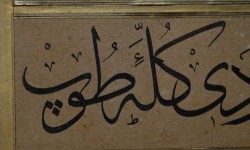 دی كُلَّه طُوپ